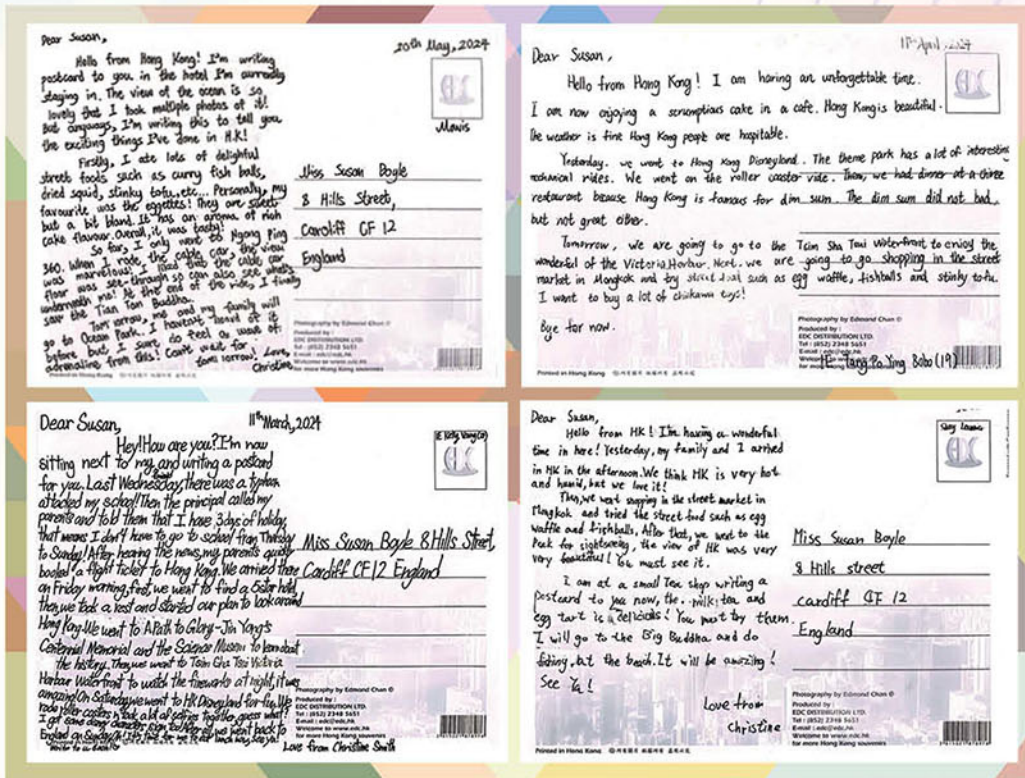 Dear Susan,
20th May, 2024
Hello from Hong Kong! I'm writing
postcard to you in the hotel I'm currently
staying in. The view of the ocean is so
lovely that I took multiple photos of it!
But anyways, I'm writing this to tell you
the exciting things I've done in H.K!
Firstly, I ate lots of delightful
street foods such as curry fish balls,
dried squid, stinky tofu, etc... Personally, my
favourite was the eggettes! They are sweet
but a bit bland. It has an aroma of rich
cake flavour. Overall, it was tasty!
So far, I only went to Ngong Ping
360. When I rode the cable car, the view
was marvelous! I liked that the cable car
floor was see-through so can also see what's
underneath me! At the end of the ride, I finally
saw the Tian Tan Buddha.
Tomorrow, me and my family will
go to Ocean Park. I haven't heard of it
before but I sure do feel a wave of
adrenaline from this! Can't wait for
tomorrow! Love,
Christine
Mavis
Miss Susan Boyle
8 Hills Street,
Cardiff CF 12
England
Photography by Edmond Chan ©
Produced by :
EDC DISTRIBUTION LTD.
Tel : (852) 2348 5651
E-mail : edc@edc.hk
Welcome to www.edc.hk
for more Hong Kong souvenirs
Printed in Hong Kong
Dear Susan,
11th April, 2024
Hello from Hong Kong! I am having an unforgettable time.
I am now enjoying a scrumptious cake in a cafe. Hong Kong is beautiful.
The weather is fine Hong Kong people are hospitable.
Yesterday. we went to Hong Kong Disneyland. The theme park has a lot of interesting
mchanical rides. We went on the roller coaster ride. Then, we had dinner at a
restaurant because Hong Kong is famous for dim sum. The dim sum did not bad,
but not great either.
Tomorrow, we are going to go to the Tsim Sha Tsui Waterfront to enjoy the
wonderful of the Victoria Harbour. Next. we are going to go shopping in the street
market in Mongkok and try street food such as egg waffle, fishballs and stinky tofu.
I want to buy a lot of chiikawa toys!
Bye for now.
1E Tang Po Ying Bobo (19)
Photography by Edmond Chan ©
Produced by :
EDC DISTRIBUTION LTD.
Tel : (852) 2348 5651
E-mail : edc@edc.hk
Welcome to www.edc.hk
for more Hong Kong souvenirs
Printed in Hong Kong
Dear Susan,
11th March, 2024
Hey! How are you? I'm now
sitting next to my and writing a postcard
for you. Last Wednesday, there was a typhoon
attacked my school! Then the principal called my
parents and told them that I have 3 days of holiday,
that means I don't have to go to school from Thursday
to Sunday! After hearing the news, my parents quickly
booked a flight ticket to Hong Kong. We arrived there
on Friday morning, first, we went to find a 5 star hotel,
then we took a rest and started our plan to look around
Hong Kong. We went to A Path to Glory-Jin Yong's
Centennial Memorial and the Science Museum to learn about
the history. Then we went to Tsim Sha Tsui Victoria
Harbour Waterfront to watch the fireworks at night, it was
amazing! On Saturday, we went to HK Disneyland for fun. We
rode roller coasters took a lot of selfies together, guess what?
we went back to
England on Sunday
Love from Christine Smith
Miss Susan Boyle 8 Hills Street,
Cardiff CF 12 England
Photography by Edmond Chan ©
Produced by :
EDC DISTRIBUTION LTD.
Tel : (852) 2348 5651
E-mail : edc@edc.hk
Welcome to www.edc.hk
for more Hong Kong souvenirs
Dear Susan,
Hello from HK! I'm having a wonderful
time in here! Yesterday, my family and I arrived
in HK in the afternoon. We think HK is very hot
and humid, but we love it!
Then, we went shopping in the street market in
Mongkok and tried the street food such as egg
waffle and fishballs. After that, we went to the
Peak for sightseeing, the view of HK was very
very beautiful! You must see it.
I am at a small Tea shop writing a
postcard to you now, the milk tea and
egg tart is delicious! You must try them.
I will go to the Big Buddha and do
fishing, at the beach. It will be amazing!
See Ya!
Love from
Christine
Miss Susan Boyle
8 Hills street
cardiff CF 12
England
Photography by Edmond Chan ©
Produced by :
EDC DISTRIBUTION LTD.
Tel : (852) 2348 5651
E-mail : edc@edc.hk
Welcome to www.edc.hk
for more Hong Kong souvenirs
Printed in Hong Kong